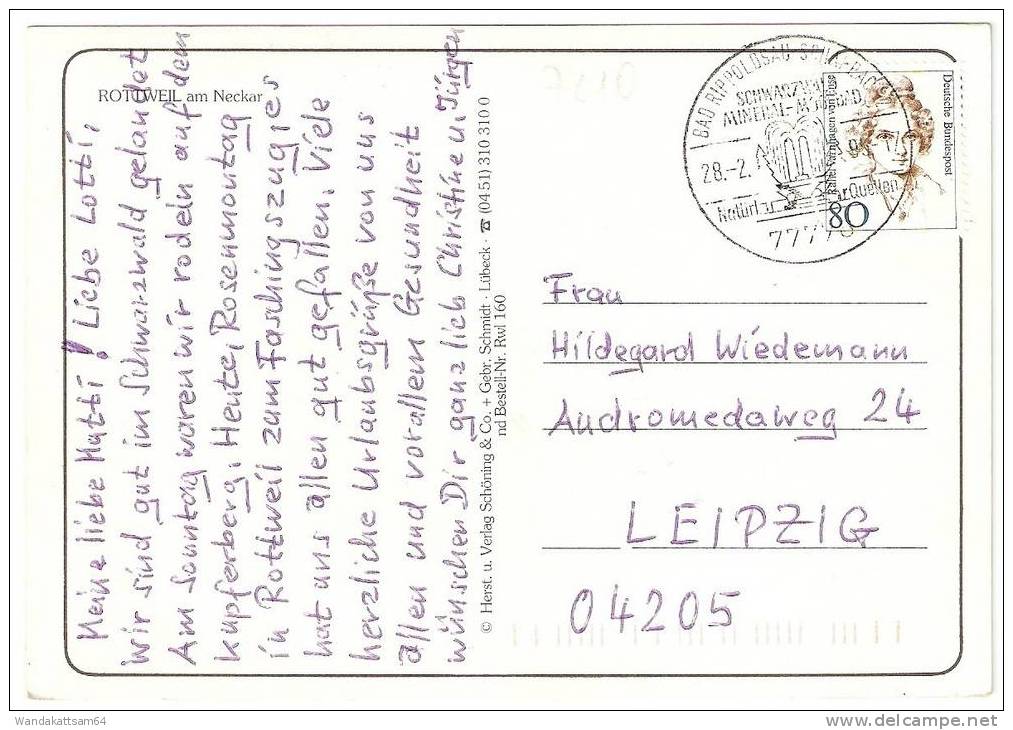 ROTTWEIL am Neckar
Meine liebe Mutti! Liebe Lotti,
wir sind gut im Schwarzwald gelandet
Am Sonntag waren wir rodeln auf dem
Kupferberg. Heute, Rosenmontag
in Rottweil zum Faschingszug. Es
hat uns allen gut gefallen. Viele
herzliche Urlaubsgrüße von uns
allen und vorallem Gesundheit
wünschen Dir ganz lieb Christine u. Jürgen
© Herst. u. Verlag Schöning & Co. + Gebr. Schmidt · Lübeck · ☎ (04 51) 310 310 0
nd Bestell-Nr. Rwl 160
BAD RIPPOLDSAU-
SCHWARZW
MINERAL-MOORBAD
28.-2.
Natürl
Quellen
7777
Deutsche Bundespost
Rahel Varnhagen von Ense
80
Frau
Hildegard Wiedemann
Andromedaweg 24
LEIPZIG
04205
Wandakattsam64
delcampe.net